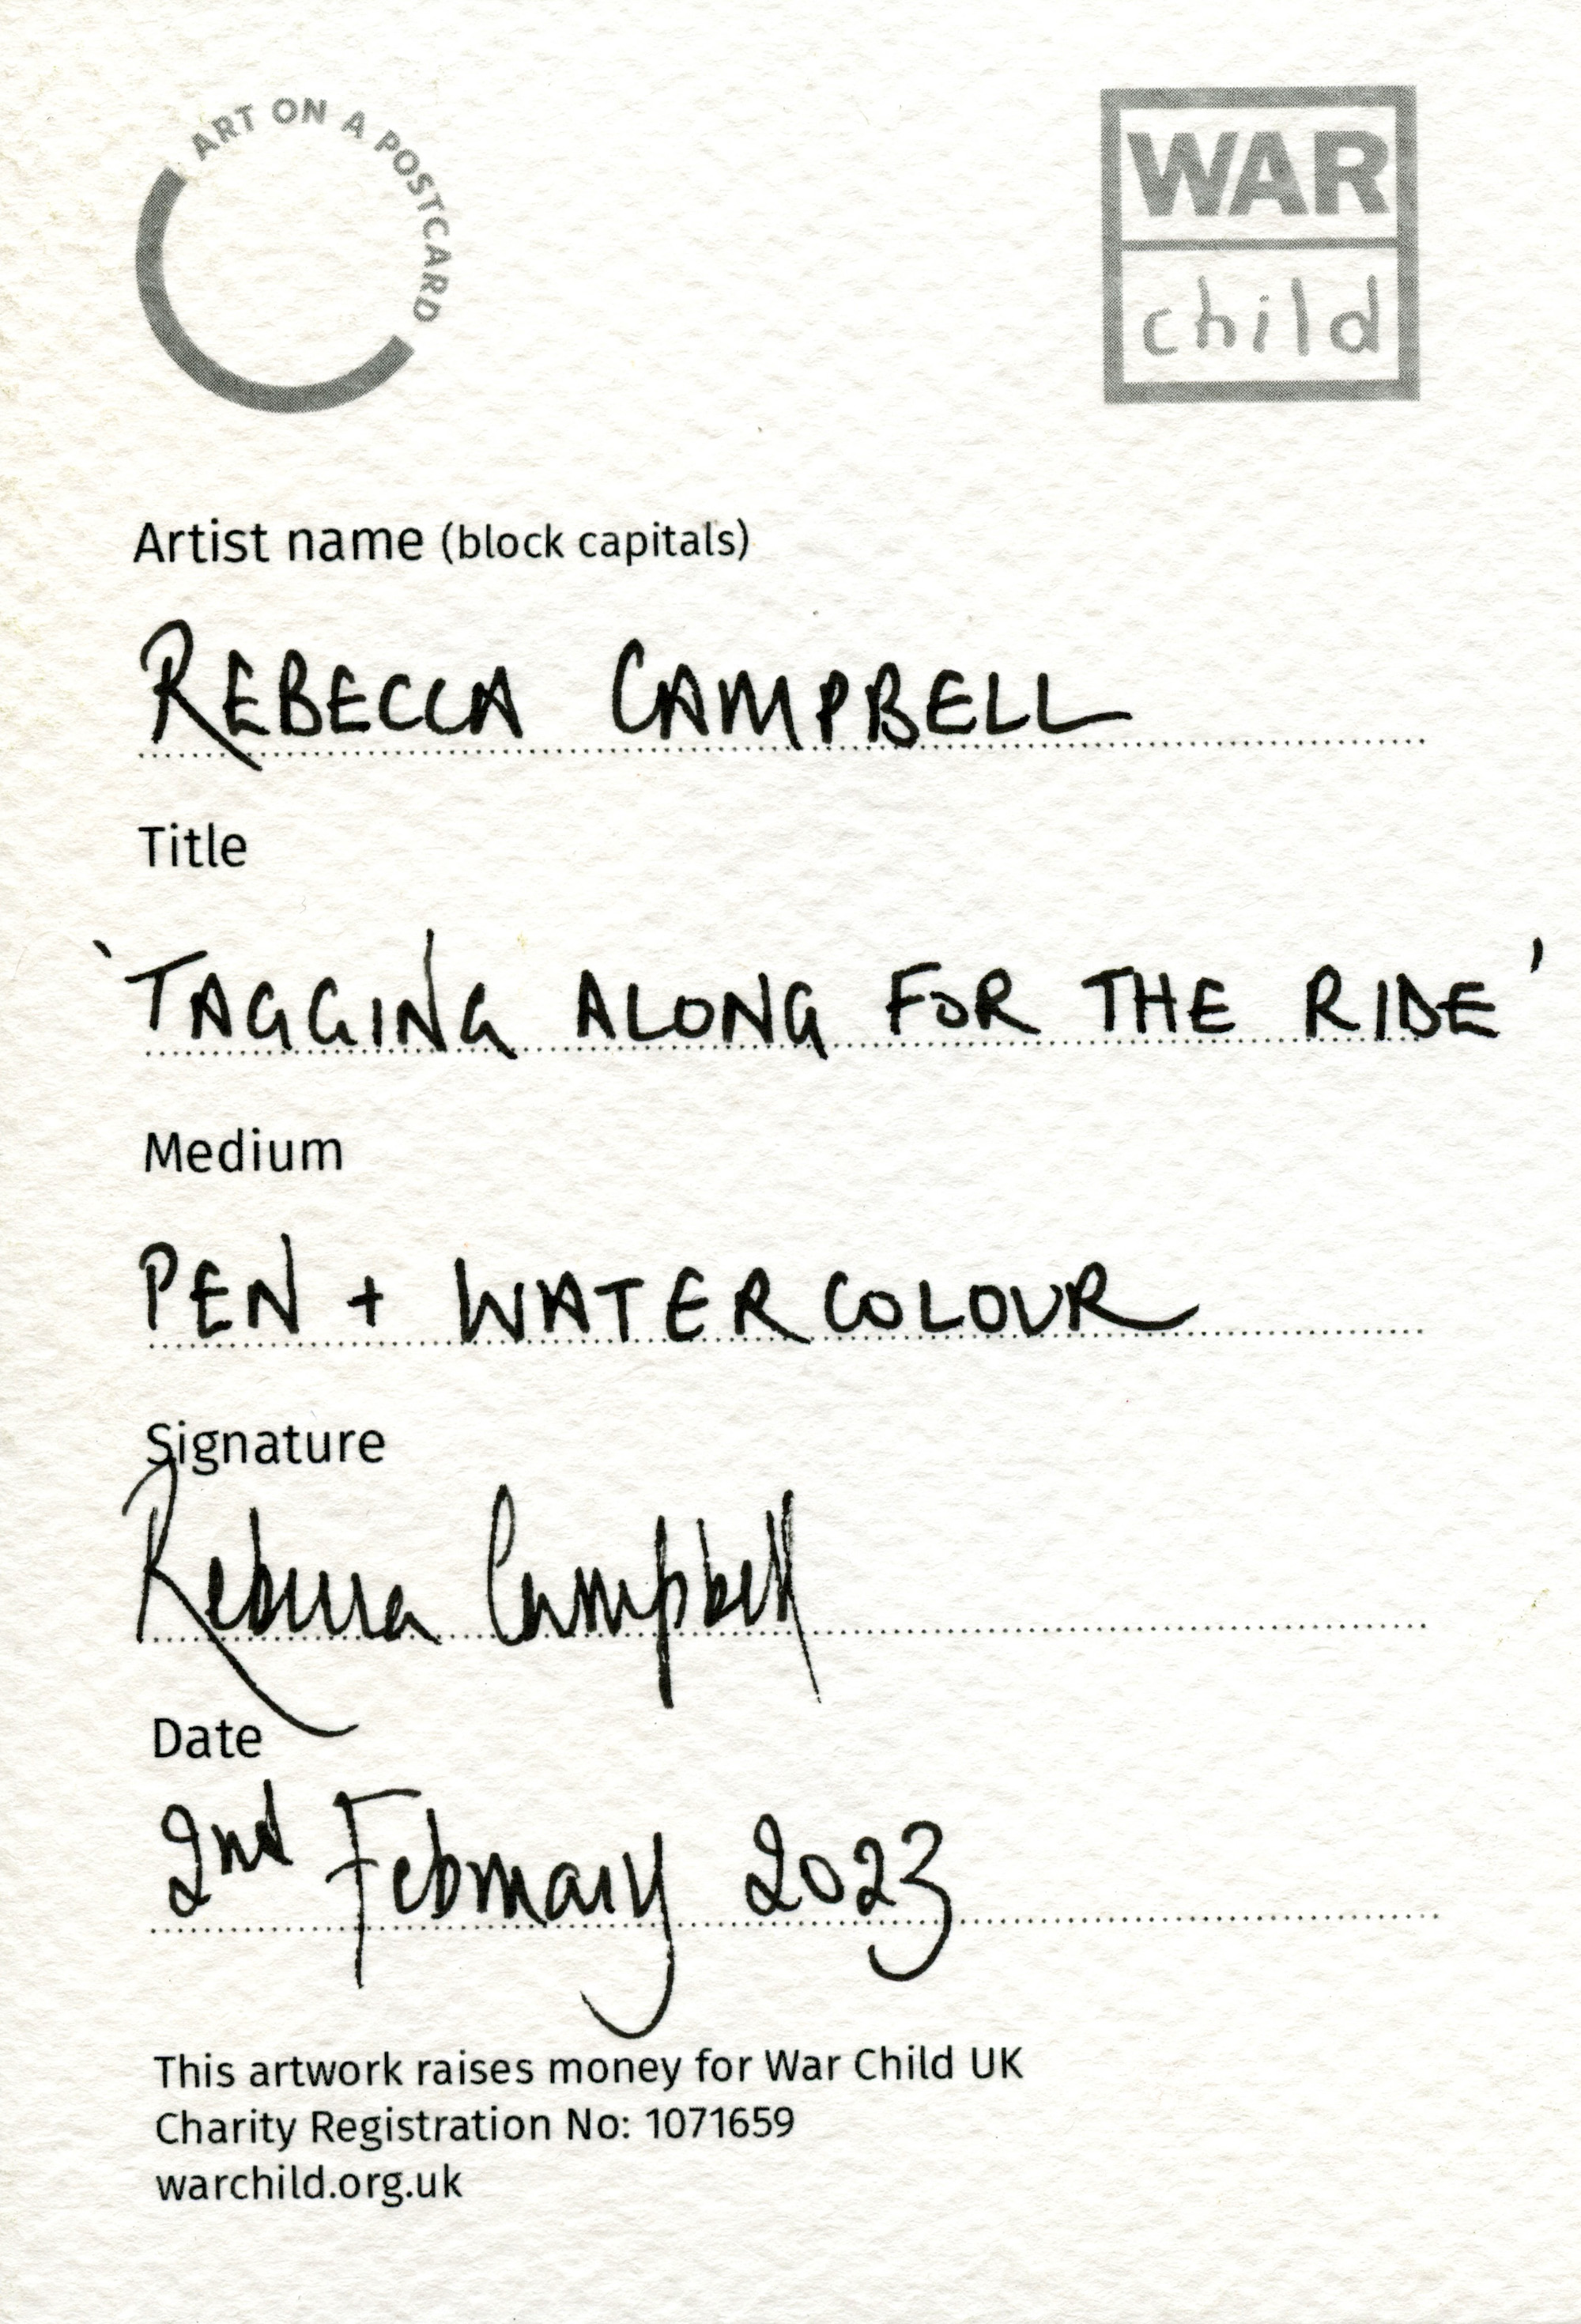 ART ON A POSTCARD
WAR
child
Artist name (block capitals)
REBECCA CAMPBELL
Title
'TAGGING ALONG FOR THE RIDE'
Medium
PEN + WATERCOLOUR
Signature
Rebecca Campbell
Date
2nd February 2023
This artwork raises money for War Child UK
Charity Registration No: 1071659
warchild.org.uk